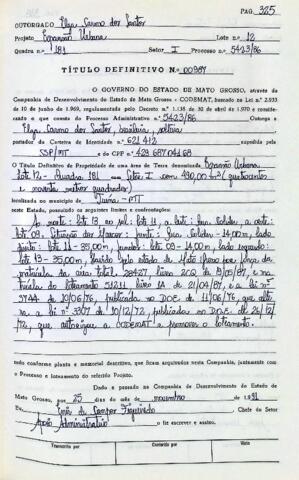 PAG. 325
OUTORGADO Elza Carmo dos Santos
Projeto Expansão Urbana Lote n.º 12
Quadra n.º 181 Setor I Processo n.º 5423/86
TÍTULO DEFINITIVO N.º 00987
O GOVERNO DO ESTADO DE MATO GROSSO, através da
Companhia de Desenvolvimento do Estado de Mato Grosso - CODEMAT, baseado na Lei n.º 2.933
de 10 de junho de 1969, regulamentada pelo Decreto n.º 1.138 de 30 de abril de 1970 e considerando
o que consta do Processo Administrativo n.º 5423/86 Outorga a
Elza Carmo dos Santos, brasileira, solteira
portador da Carteira de Identidade n.º 621.412 expedida pela
SSP/MT e do CPF n.º
O Título Definitivo de Propriedade de uma Área de Terra denominada Expansão Urbana
Lote 12 - Quadra 181 Setor I com 490,00 m2 (quatrocentos
e noventa metros quadrados)
localizada no município de Juina - MT
neste Estado, possuindo os seguintes limites e confrontações:
Ao norte: lote 13, ao sul: lote 11, a leste: Rua
lote 09. frente: Rua - 14,00m, lado
direito: lote 11 - 35,00m, fundos: lote 09 - 14,00m, lado esquerdo:
lote 13 - 35,00m, pelo estado de Mato Grosso por força da
matrícula da área total 28427, livro 2CQ de 19/05/87, e na
trícula do loteamento 51211 livro 1A de 21/04/87, e a lei nº
3744 de 10/06/76, publicada no DOE de 11/06/76, que alte
ra a lei nº 3307 de 10/12/72, publicada no DOE de 26/12/
72, que autorizou a CODEMAT a promover o loteamento.
tudo conforme planta e memorial descritivo, que ficam arquivados nesta Companhia, juntamente com
o Processo e loteamento do referido Projeto.
Dado e passado na Companhia de Desenvolvimento do Estado de
Mato Grosso, aos 25 dias do mês de novembro de 1991
Eu, Enir de Campos Figueiredo Chefe do Setor
Apoio Administrativo o fiz escrever e assino.
Transcrito por Conferido por Visto